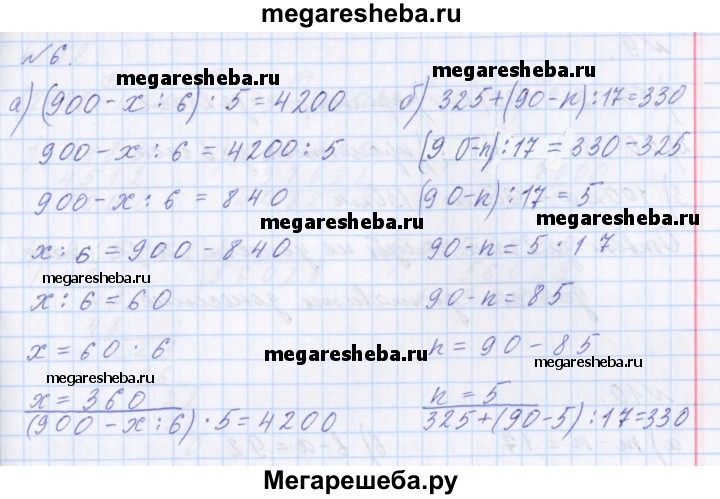 megaresheba.ru
№ 6.
а) (900 - x : 6) · 5 = 4200
900 - x : 6 = 4200 : 5
900 - x : 6 = 840
x : 6 = 900 - 840
x : 6 = 60
x = 60 · 6
x = 360
(900 - x : 6) · 5 = 4200
б) 325 + (90 - n) : 17 = 330
(90 - n) : 17 = 330 - 325
(90 - n) : 17 = 5
90 - n = 5 · 17
90 - n = 85
n = 90 - 85
n = 5
325 + (90 - 5) : 17 = 330
megaresheba.ru
megaresheba.ru
megaresheba.ru
megaresheba.ru
megaresheba.ru
megaresheba.ru
megaresheba.ru
megaresheba.ru
megaresheba.ru
Мегарешеба.ру